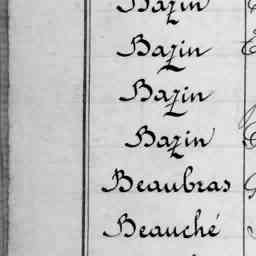 Bazin
Bazin
Bazin
Bazin
Beaubras
Beauché